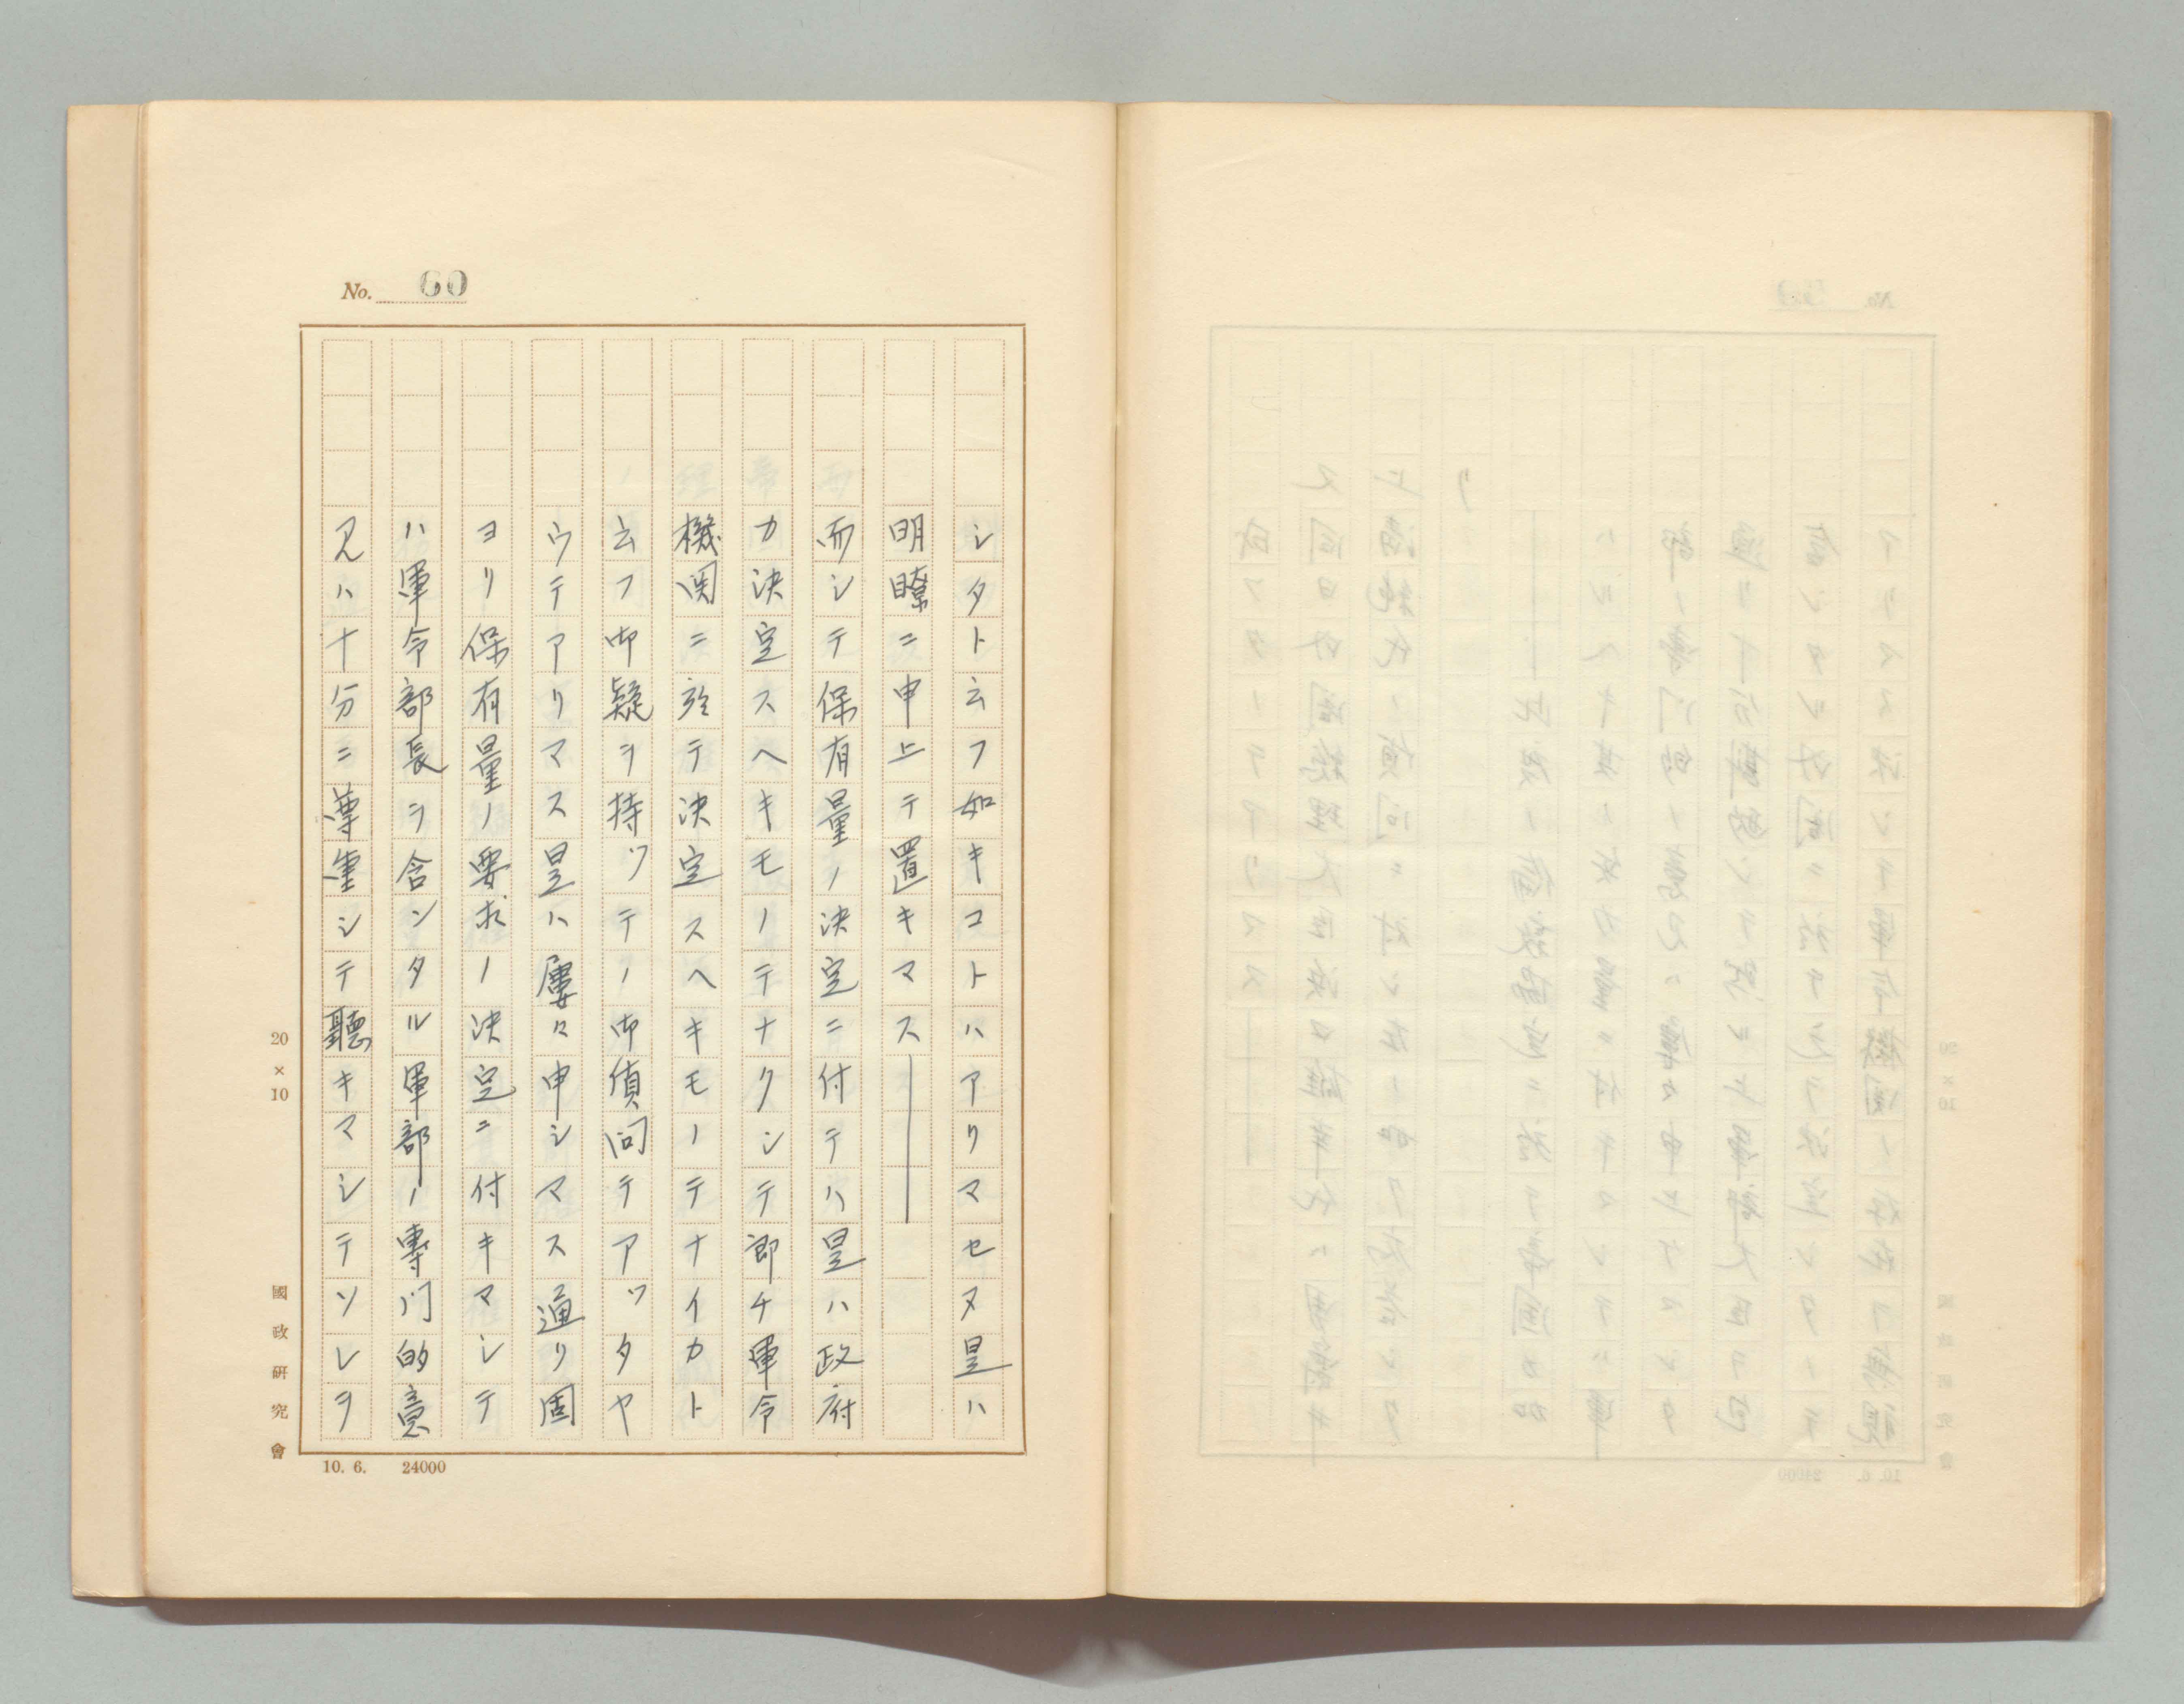 No. 60
シタト云フ如キコトハアリマセヌ是ハ
明瞭ニ申上テ置キマス――
而シテ保有量ノ決定ニ付テハ是ハ政府
カ決定スヘキモノテナクシテ即チ軍令
機関ニ於テ決定スヘキモノテナイカト
云フ御疑ヲ持ツテノ御質問テアツタヤ
ウテアリマス是ハ屢々申シマス通リ固
ヨリ保有量ノ要求ノ決定ニ付キマシテ
ハ軍令部長ヲ含ンタル軍部ノ専門的意
見ハ十分ニ尊重シテ聴キマシテソレヲ
20×10
國政研究會
10. 6. 24000